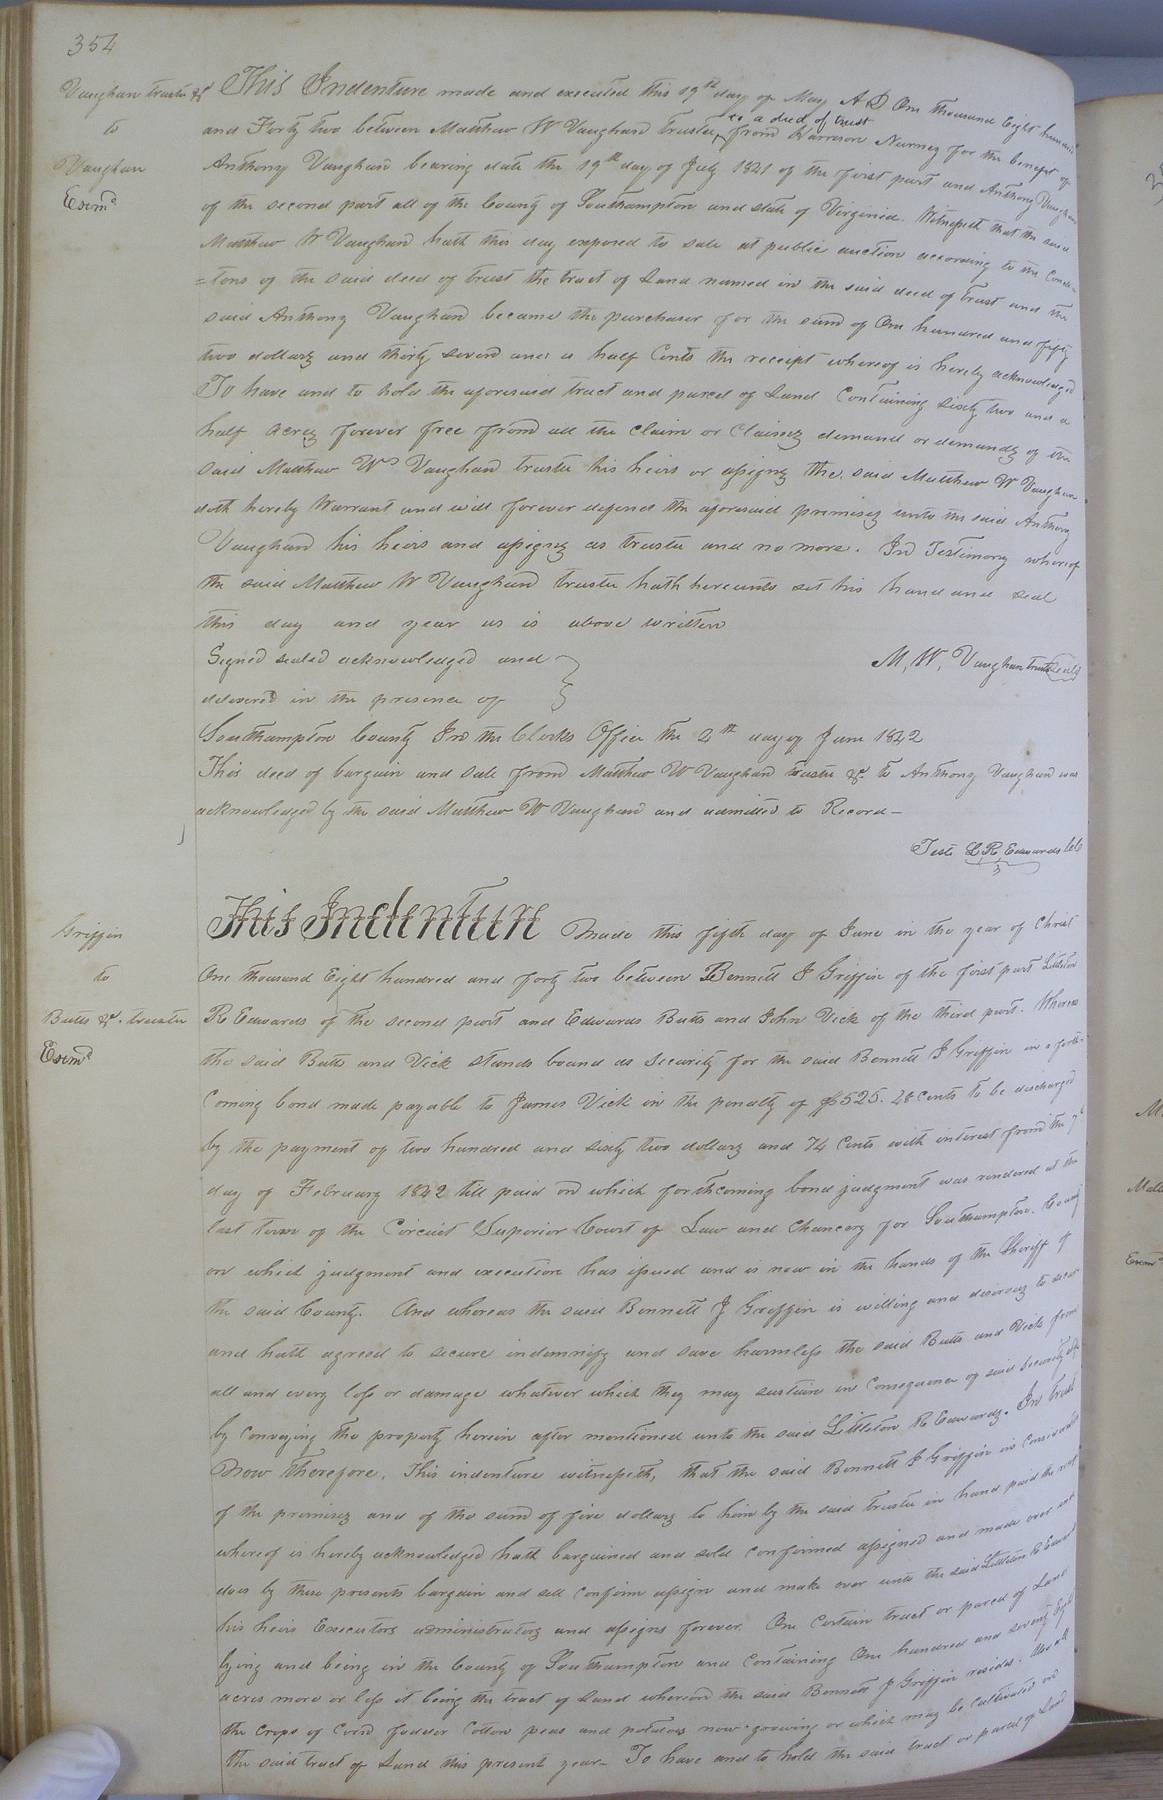 354
Vaughan trustee &c
to
Vaughan
Exem.d
This Indenture made and executed this 19th day of May A D One thousand Eight hundred
and Forty two between Matthew W Vaughan trustee, to a deed of trust from Harrison Nurney for the benefit of
Anthony Vaughan bearing date the 19th day of July 1821 of the first part and Anthony Vaughan
of the second part all of the County of Southampton and state of Virginia. Witnesseth that the said
Matthew W Vaughan hath this day exposed to sale at public auction according to the Condi-
=tons of the said deed of trust the tract of Land named in the said deed of trust and the
said Anthony Vaughan became the purchaser for the sum of One hundred and fifty
two dollars and thirty seven and a half Cents the receipt whereof is hereby acknowledged
To have and to hold the aforesaid tract and parcel of Land Containing Sixty two and a
half acres forever free from all the Claim or Claims demand or demands of the
said Matthew W Vaughan trustee his heirs or assigns the said Matthew W Vaughan
doth hereby Warrant and will forever defend the aforesaid premises unto the said Anthony
Vaughan his heirs and assigns as trustee and no more. In Testimony whereof
the said Matthew W Vaughan trustee hath hereunto set his hand and seal
this day and year as is above written
Signed sealed acknowledged and
delivered in the presence of
M. W. Vaughan trustee Seal
Southampton County In the Clerks Office the 2th day of June 1842
This deed of bargain and sale from Matthew W Vaughan trustee &c to Anthony Vaughan was
acknowledged by the said Matthew W Vaughan and admitted to Record—
Teste L R Edwards
Griffin
to
Butts &c. trustee
Exem.d
This Indenture Made this fifth day of June in the year of Christ
One thousand Eight hundred and forty two between Bennett J Griffin of the first part Littleton
R Edwards of the second part and Edwards Butts and John Vick of the third part. Whereas
the said Butts and Vick stands bound as Security for the said Bennett J Griffin in a forth-
Coming bond made payable to James Vick in the penalty of $525. Cents to be discharged
by the payment of two hundred and sixty two dollars and 74 Cents with interest from the
day of February 1842 till paid on which forthcoming bond judgment was rendered at the
last term of the Circuit Superior Court of Law and Chancery for Southampton County
on which judgment and execution has issued and is now in the hands of the Sheriff of
the said County. And whereas the said Bennett J Griffin is willing and desirous to
and hath agreed to secure indemnify and save harmless the said Butts and Vick from
all and every loss or damage whatever which they may sustain in Consequence of said Security
by Conveying the property herein after mentioned unto the said Littleton R Edwards. In trust
Now therefore, This indenture witnesseth, that the said Bennett J Griffin in Consideration
of the premises and of the sum of five dollars to him by the said trustee in hand paid the
whereof is hereby acknowledged hath bargained and sold confirmed assigned and made over and
does by these presents bargain and sell confirm assign and make over unto the said Littleton R Edwards
his heirs Executors administrators and assigns forever. One Certain tract or parcel of Land
lying and being in the County of Southampton and Containing One hundred and seventy Eight
acres more or less it being the tract of Land whereon the said Bennett J Griffin resides. Also all
the Crops of Corn fodder Cotton peas and potatoes now growing or which may be Cultivated on
the said tract of Land this present year— To have and to hold the said tract or parcel of Land